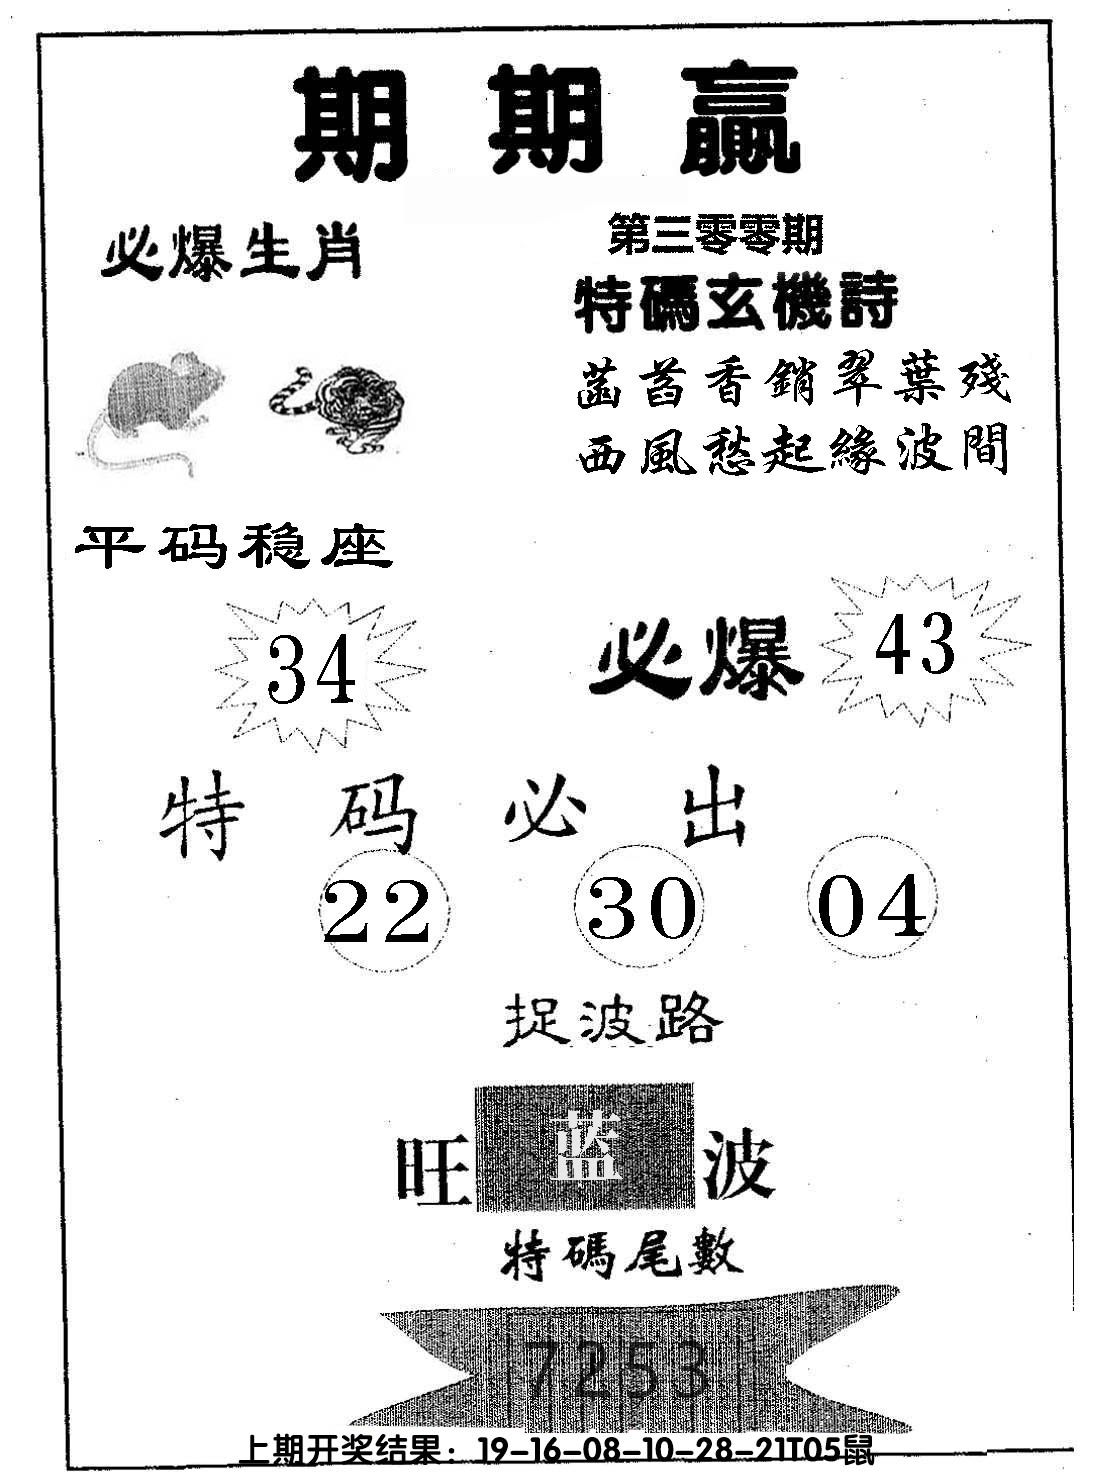 期期赢
必爆生肖
第三零零期
特碼玄機詩
菡萏香銷翠葉殘
西風愁起緣波間
平码稳座
34
必爆 43
特码必出
22 30 04
捉波路
旺 蓝 波
特碼尾數
7253
上期开奖结果：19-16-08-10-28-21T05鼠